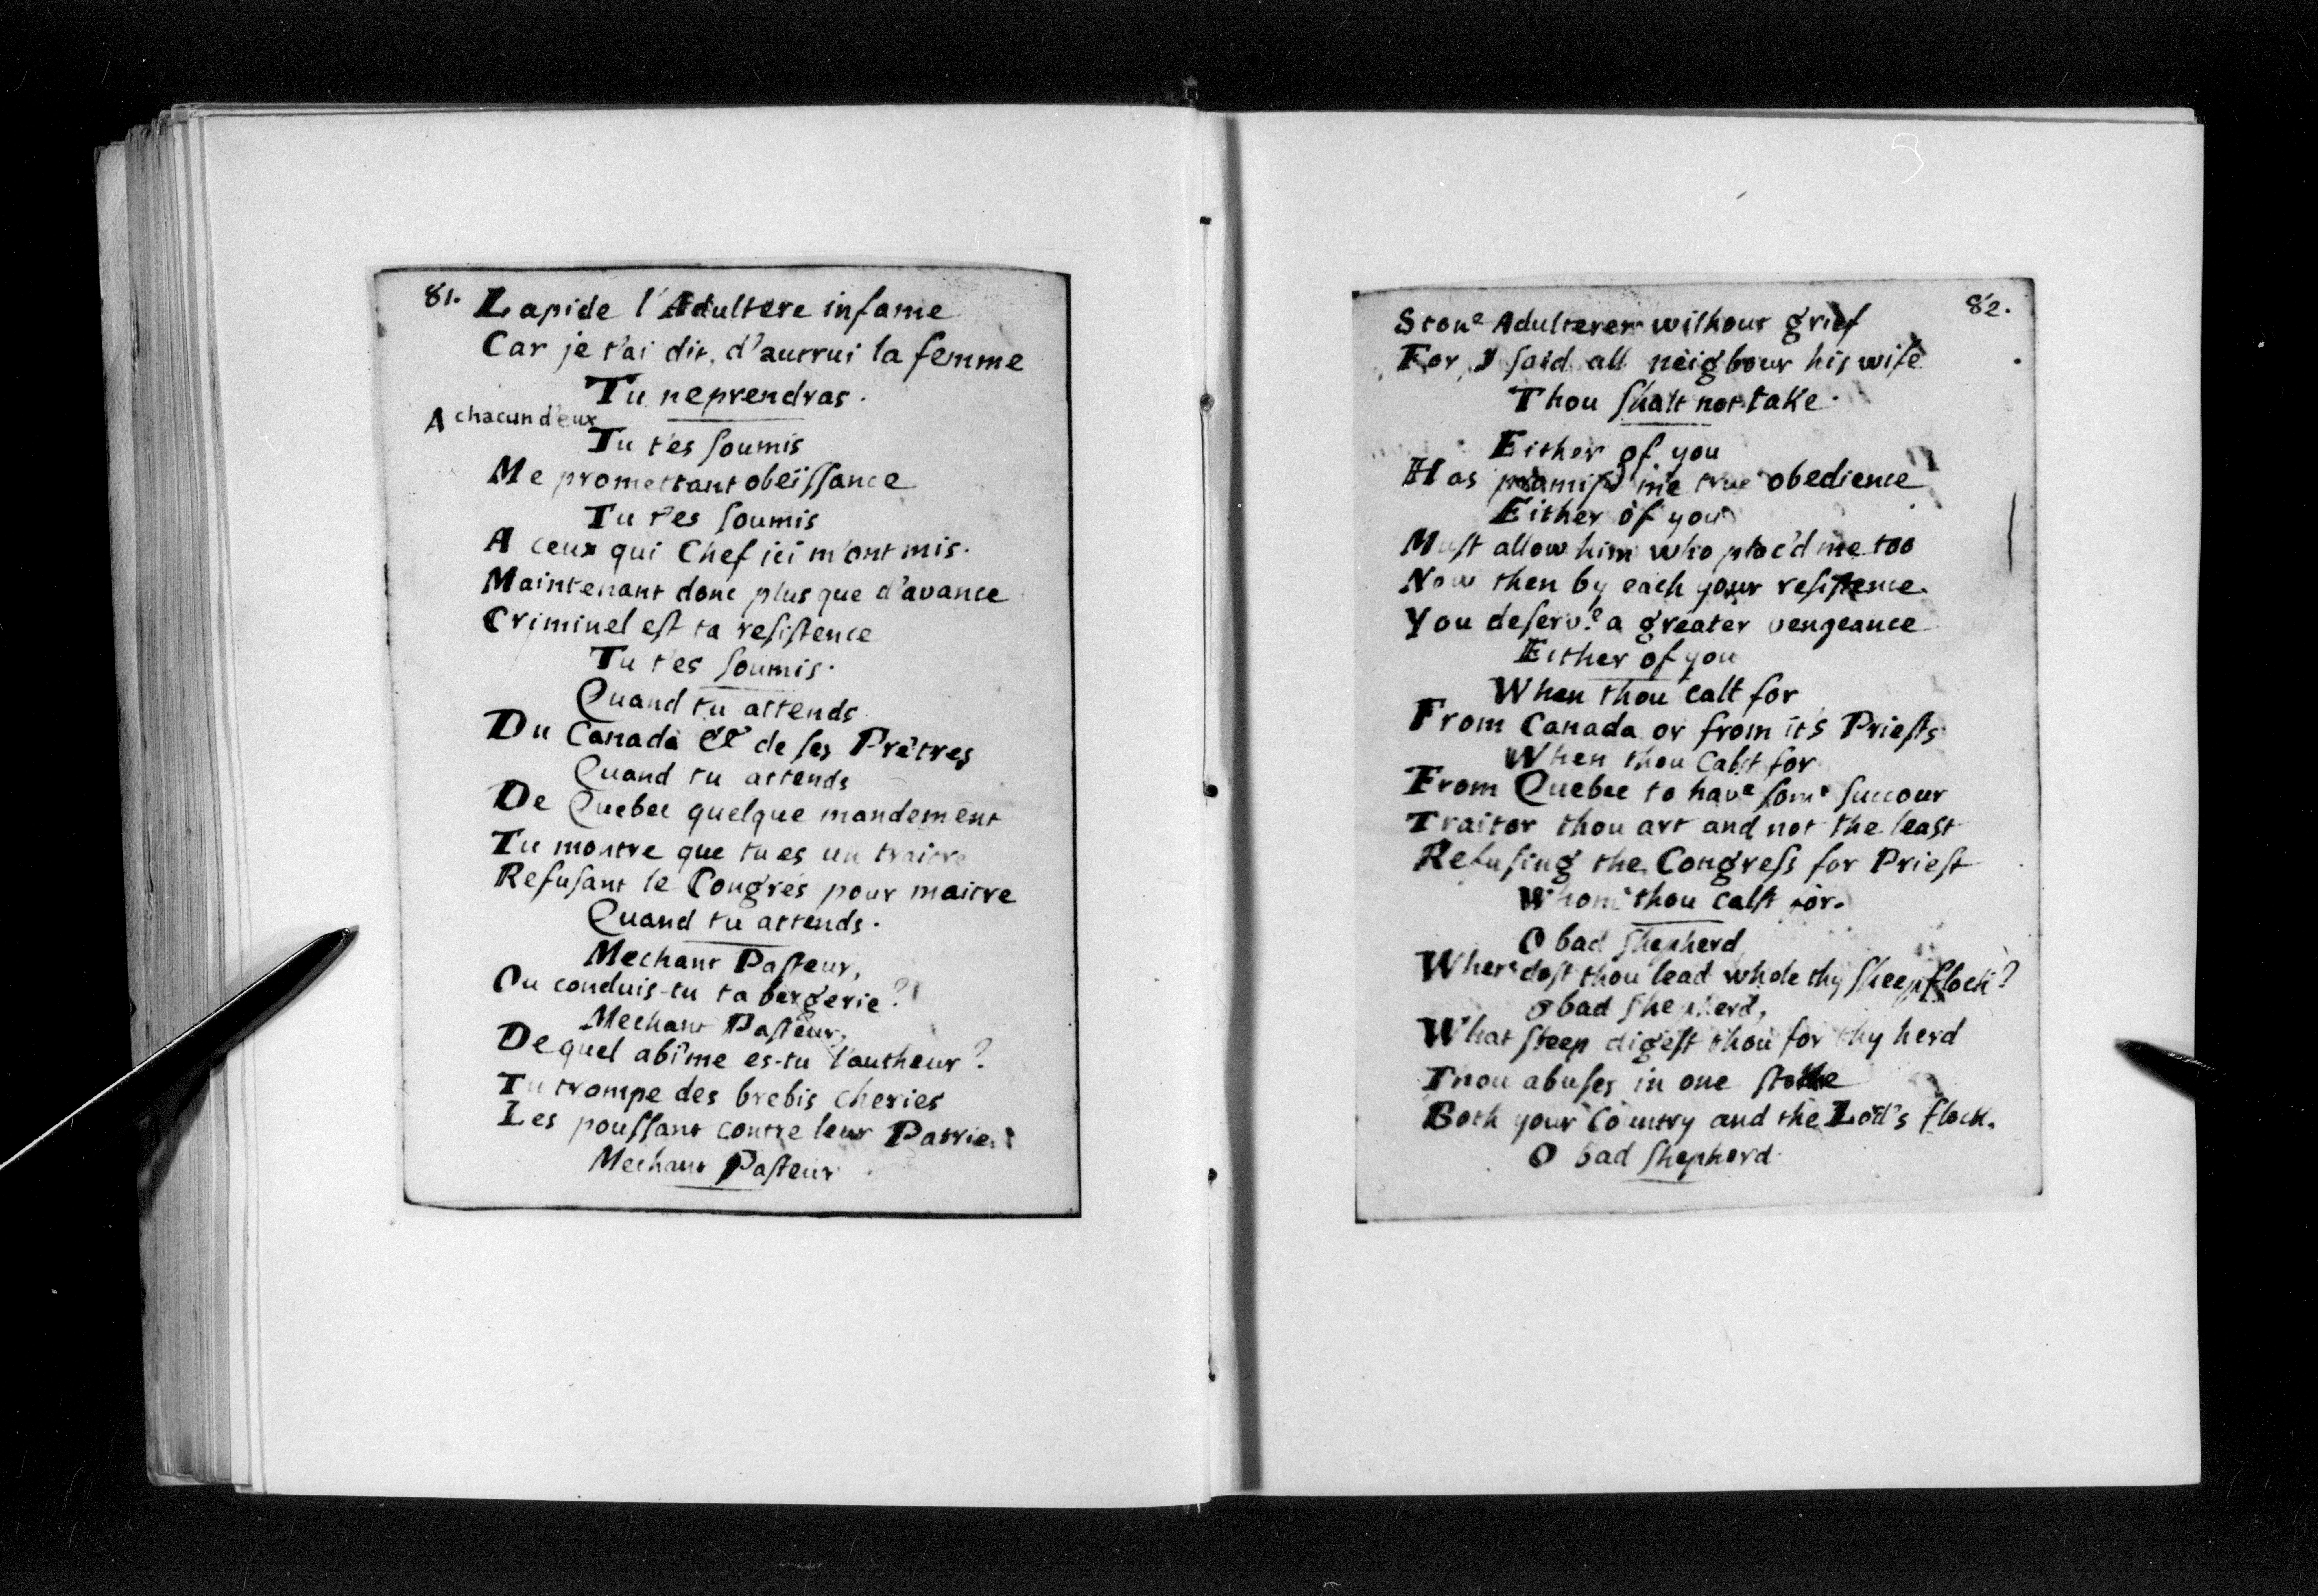 81. Lapide l'Adultere infame
Car je t'ai dit, d'autrui la femme
Tu ne prendras.
A chacun d'eux
Tu t'es soumis
Me promettant obëissance
Tu t'es soumis
A ceux qui Chef ici m'ont mis.
Maintenant donc plus que d'avance
Criminel est ta resistence
Tu t'es soumis.
Quand tu attends
Du Canada & de ses Prêtres
Quand tu attends
De Quebec quelque mandement
Tu montre que tu es un traitre
Refusant le Congrés pour maitre
Quand tu attends.
Mechant Pasteur,
Ou conduis-tu ta bergerie?
Mechant Pasteur,
De quel abîme es-tu l'autheur?
Tu trompe des brebis cheries
Les poussant contre leur Patrie.
Mechant Pasteur
82.
Stone Adulterer wilhout grief
For, I said all neigbour his wife
Thou shalt not take.
Either of you
Has promis'd me true obedience
Either of you
Must allow him who plac'd me too
Now then by each your resistence.
You deserve a greater vengeance
Either of you
When thou calt for
From Canada or from it's Priests
When thou Calst for
From Quebec to have some succour
Traitor thou art and not the least
Refusing the Congress for Priest
Whom thou calst for.
O bad shepherd
Where dost thou lead whole thy sheepflock?
O bad shepherd,
What steep digest thou for thy herd
Thou abuses in one
Both your Country and the Lord's flock.
O bad shepherd.